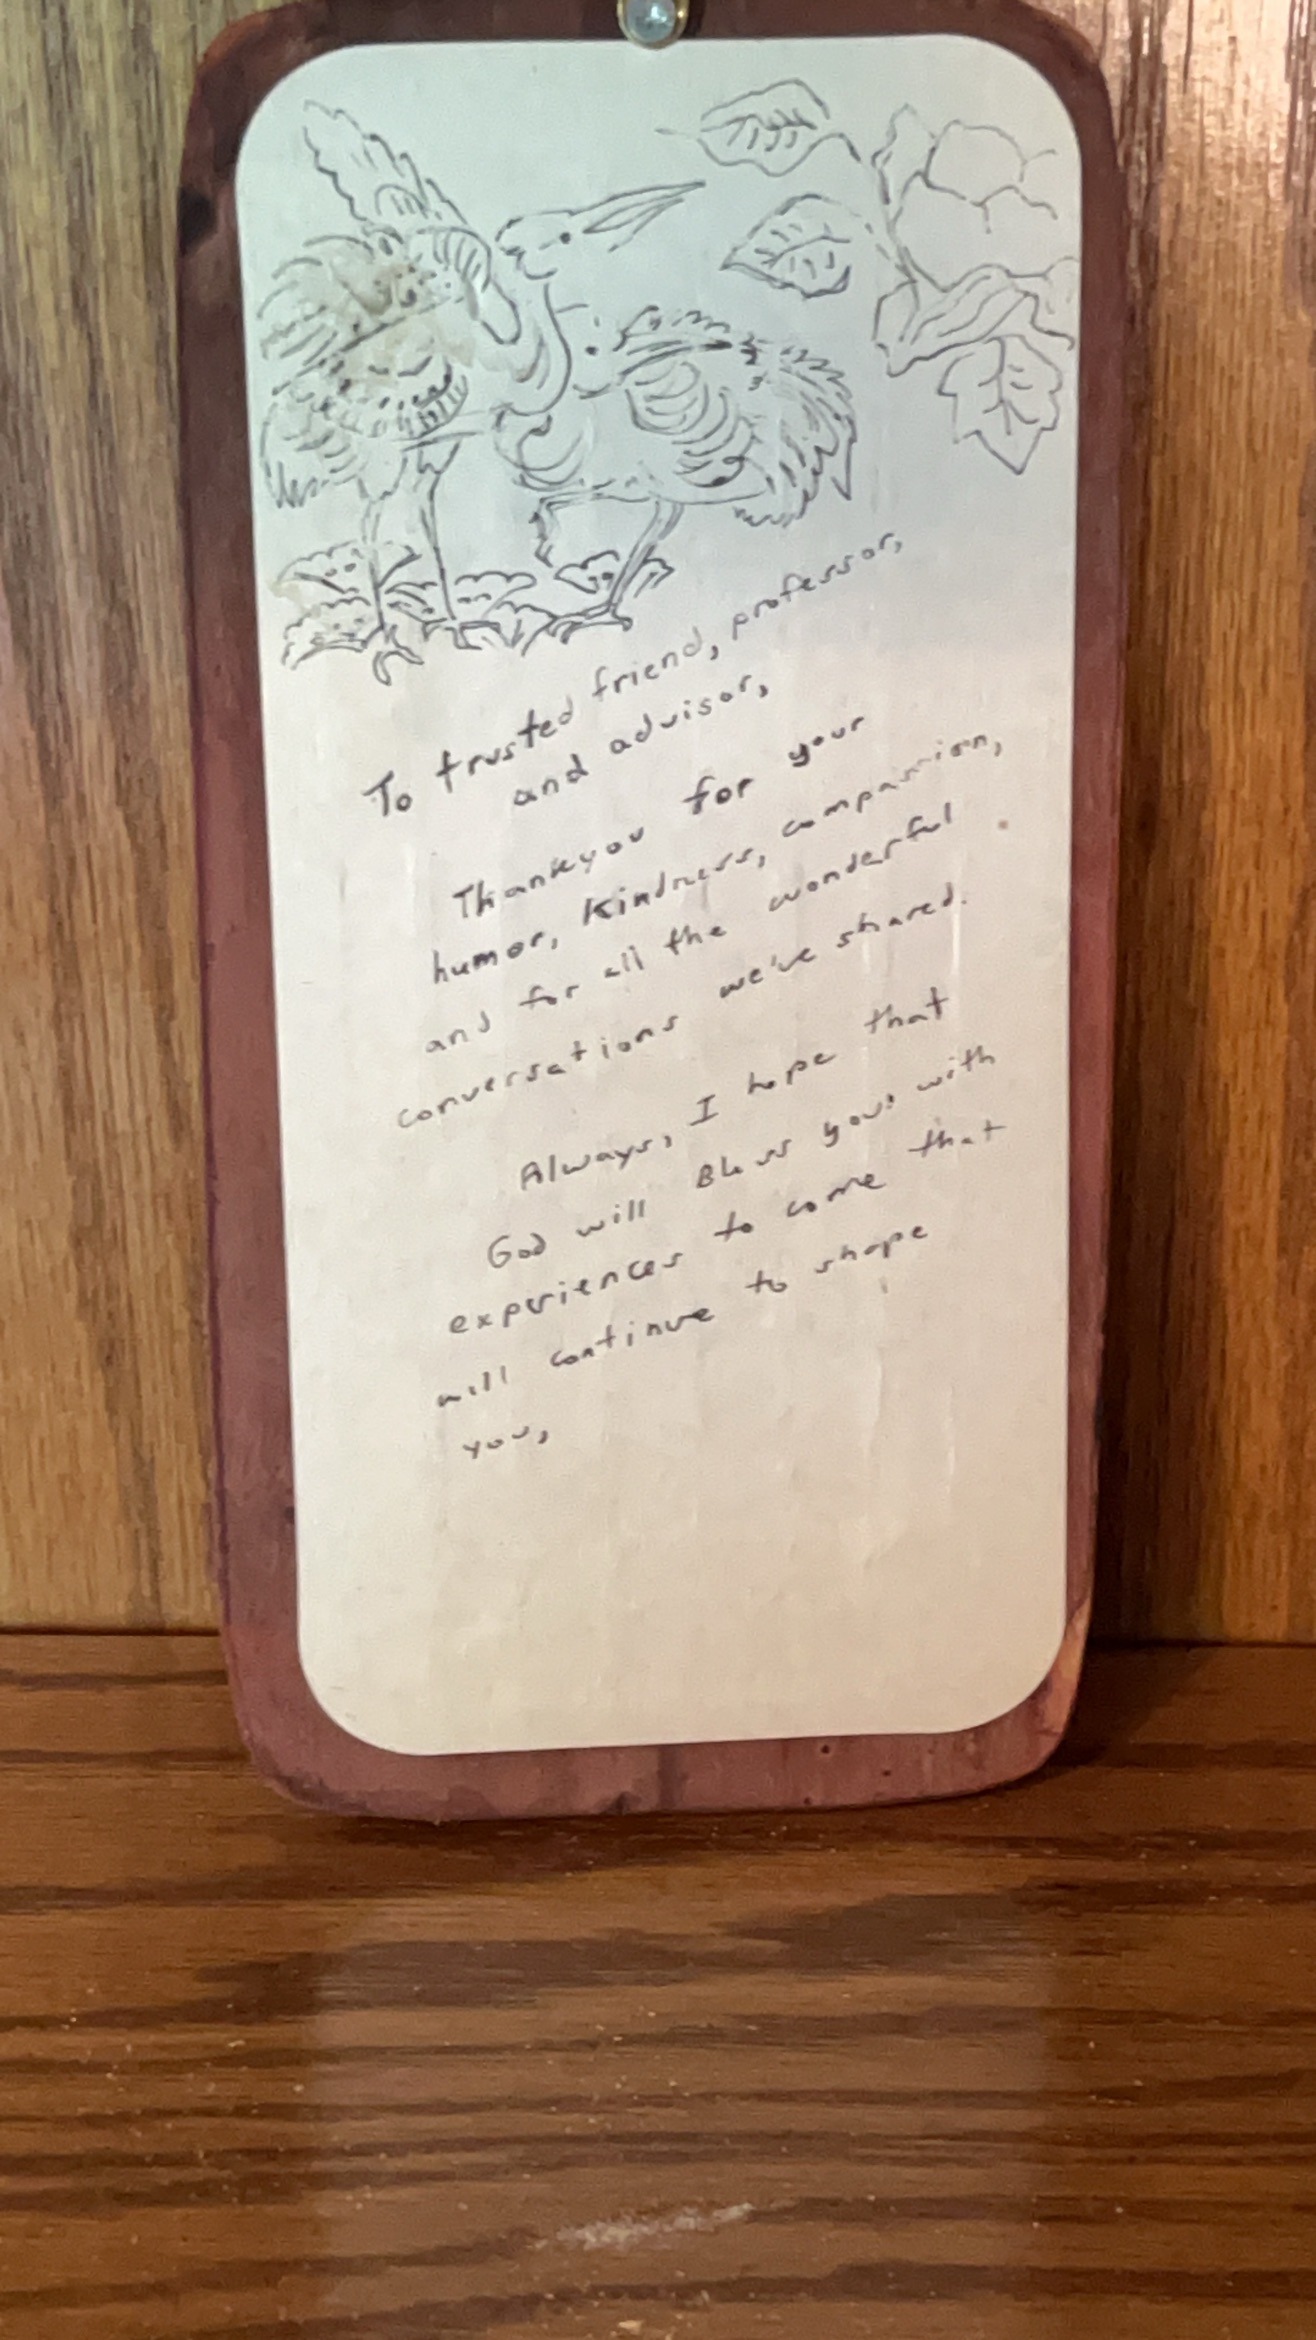 To trusted friend, professor,
and advisor,
Thankyou for your
humor, kindness, compassion,
and for all the wonderful
conversations we've shared.
Always, I hope that
God will Bless you with
experiences to come that
will continue to shape
you,